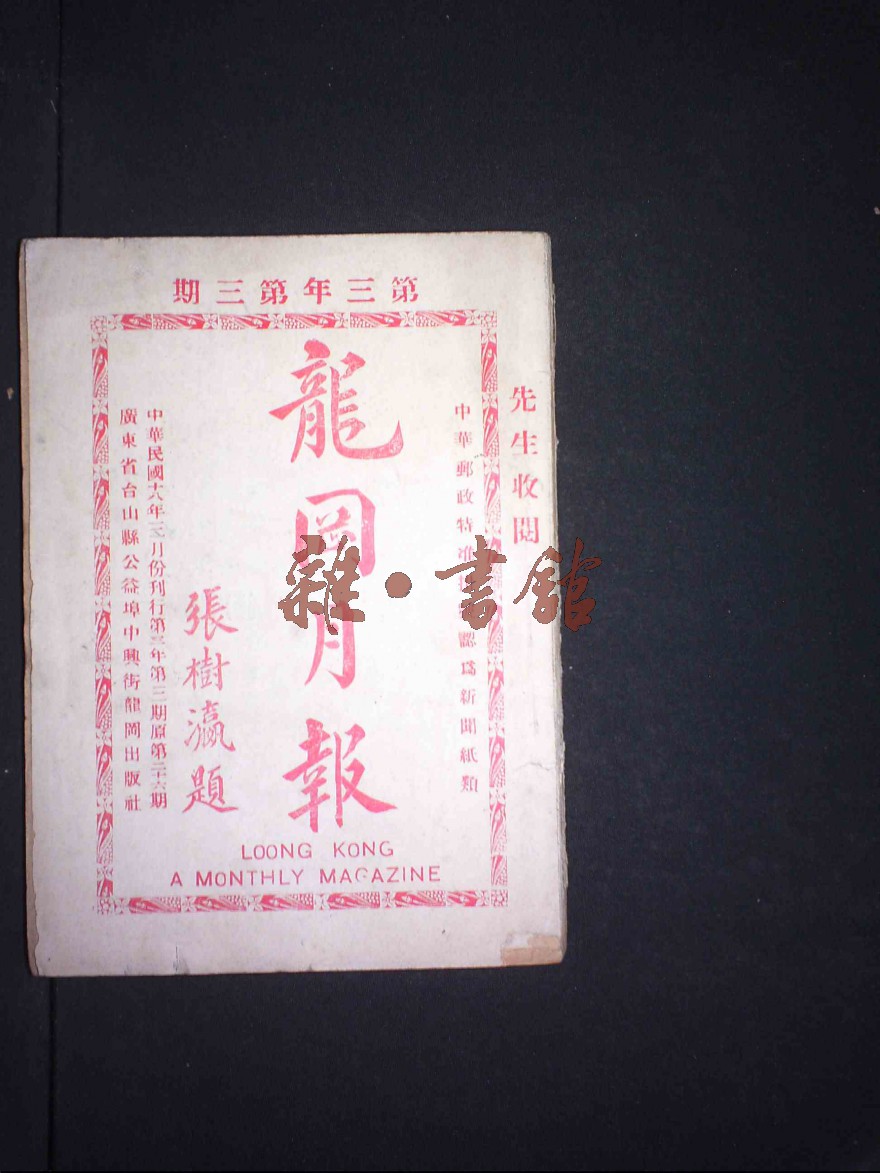 第三年第三期
先生收閱
中華郵政特准掛號認爲新聞紙類
龍岡月報
張樹瀛題
中華民國十八年三月份刊行第三年第三期原第二十六期
廣東省台山縣公益埠中興街龍岡出版社
LOONG KONG
A MONTHLY MAGAZINE
雜·書館